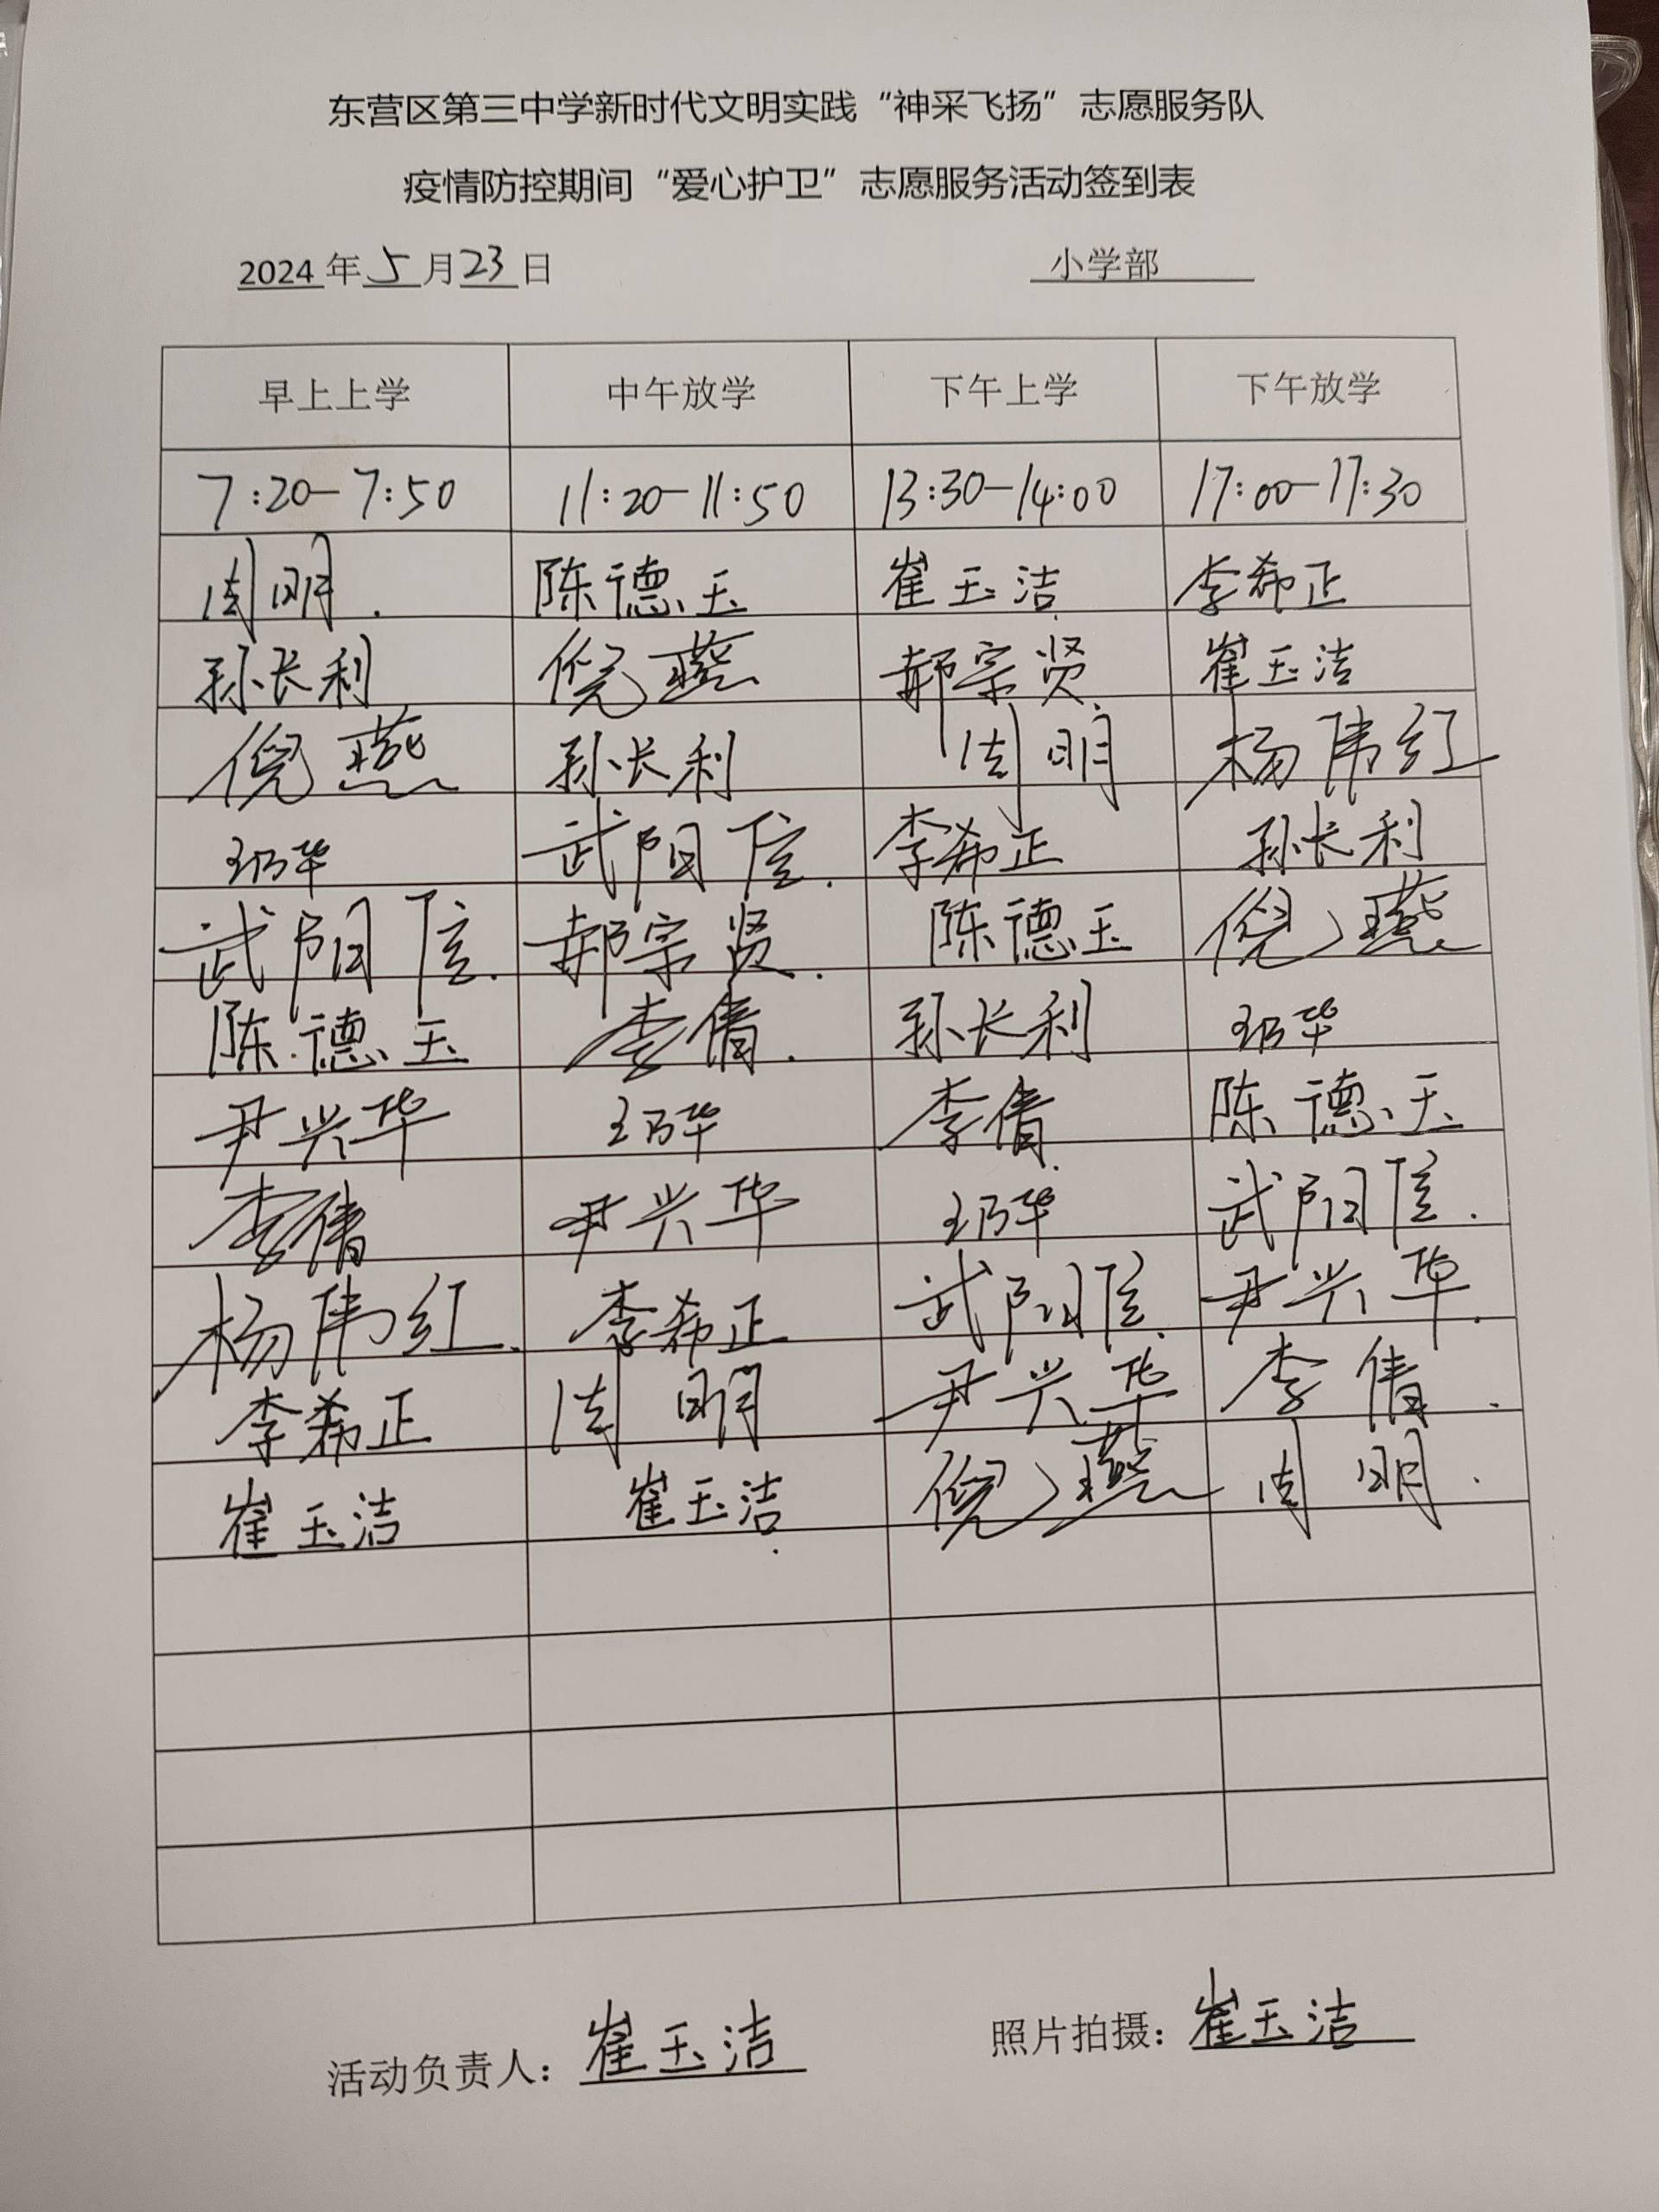 东营区第三中学新时代文明实践“神采飞扬”志愿服务队
疫情防控期间“爱心护卫”志愿服务活动签到表
2024年5月23日 小学部
早上上学 中午放学 下午上学 下午放学
7:20-7:50 11:20-11:50 13:30-14:00 17:00-17:30
周明. 陈德玉 崔玉洁 李希正
孙长利 倪燕 郝宗贤 崔玉洁
倪燕 孙长利 周明 杨伟红
王乃华 武阳信. 李希正 孙长利
武阳信. 郝宗贤. 陈德玉 倪燕
陈德玉 李倩. 孙长利 王乃华
尹兴华 王乃华 李倩. 陈德玉
李倩 尹兴华 王乃华 武阳信.
杨伟红. 李希正 武阳信. 尹兴华.
李希正 周明 尹兴华 李倩.
崔玉洁 崔玉洁. 倪燕 周明.
活动负责人：崔玉洁 照片拍摄：崔玉洁